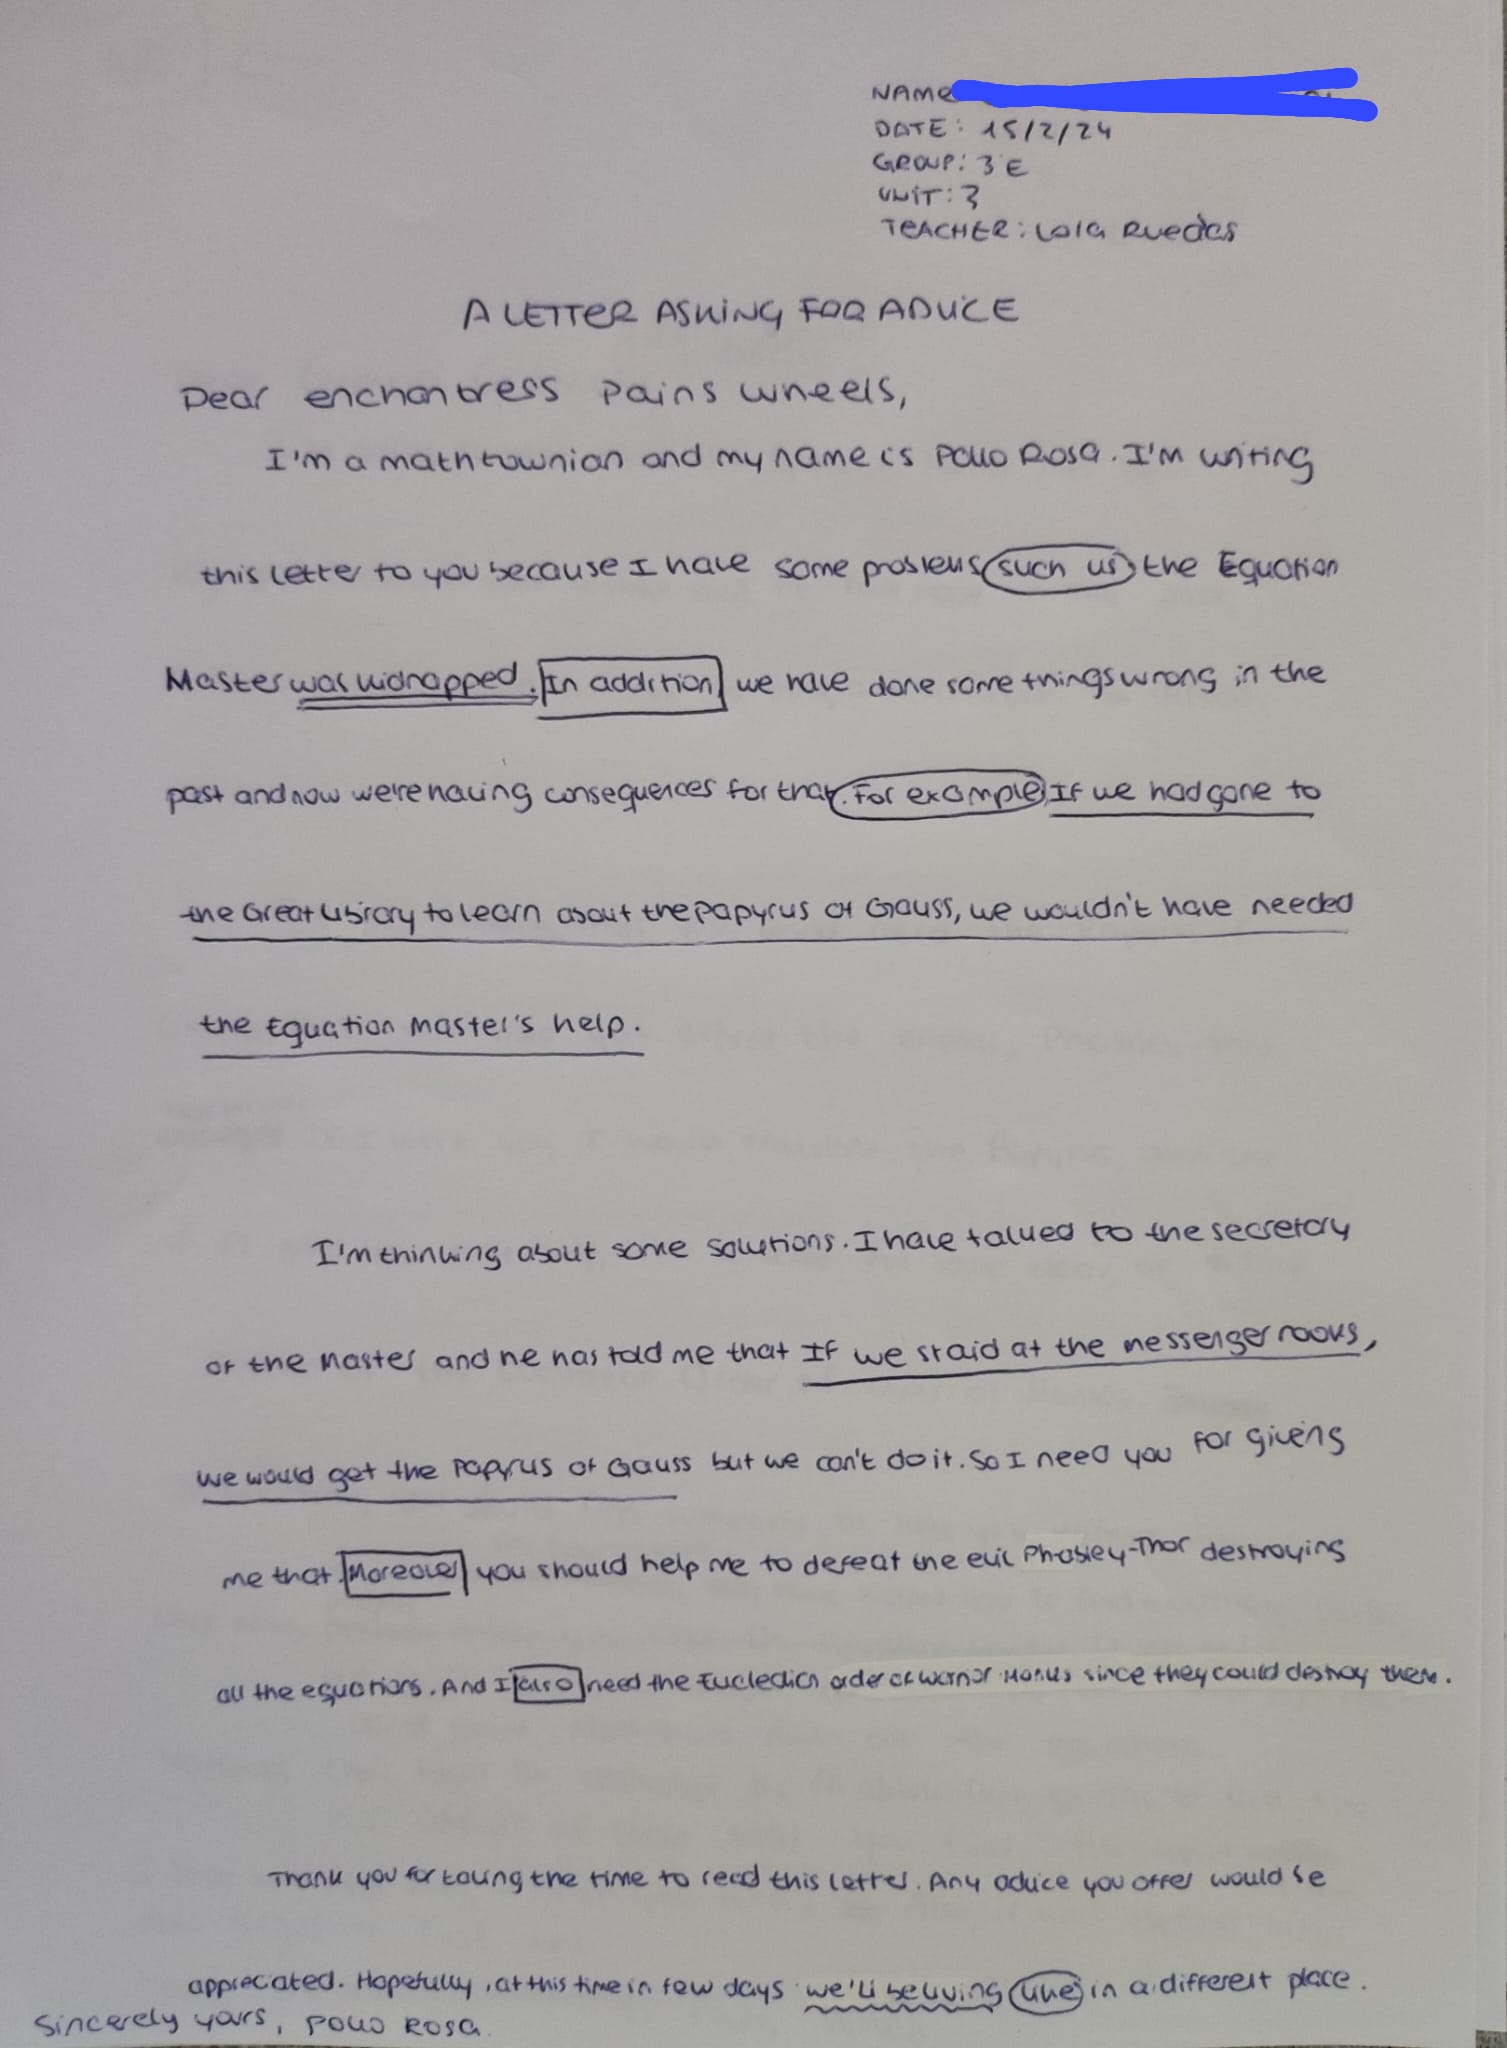 NAME
DATE: 15/2/24
GROUP: 3E
UNIT: 3
TEACHER: Lola Ruedas
A LETTER ASKING FOR ADVICE
Dear enchantress Pains wheels,
I'm a mathtownian and my name is Pollo Rosa. I'm writing
this letter to you because I have some problems such us the Equation
Master was kidnapped. In addition we have done some things wrong in the
past and now we're having consequences for that. For example If we had gone to
the Great Library to learn about the papyrus of Gauss, we wouldn't have needed
the Equation Master's help.
I'm thinking about some solutions. I have talked to the secretary
of the Master and he has told me that If we staid at the messenger rooks,
we would get the Papyrus of Gauss but we can't do it. So I need you for giving
me that. Moreover you should help me to defeat the evil Phobley-Thor destroying
all the equations. And I also need the Eucledian order of warrior Monks since they could destroy them.
Thank you for taking the time to read this letter. Any advice you offer would be
appreciated. Hopefully, at this time in few days we'll be living like in a different place.
Sincerely yours, Pollo Rosa.